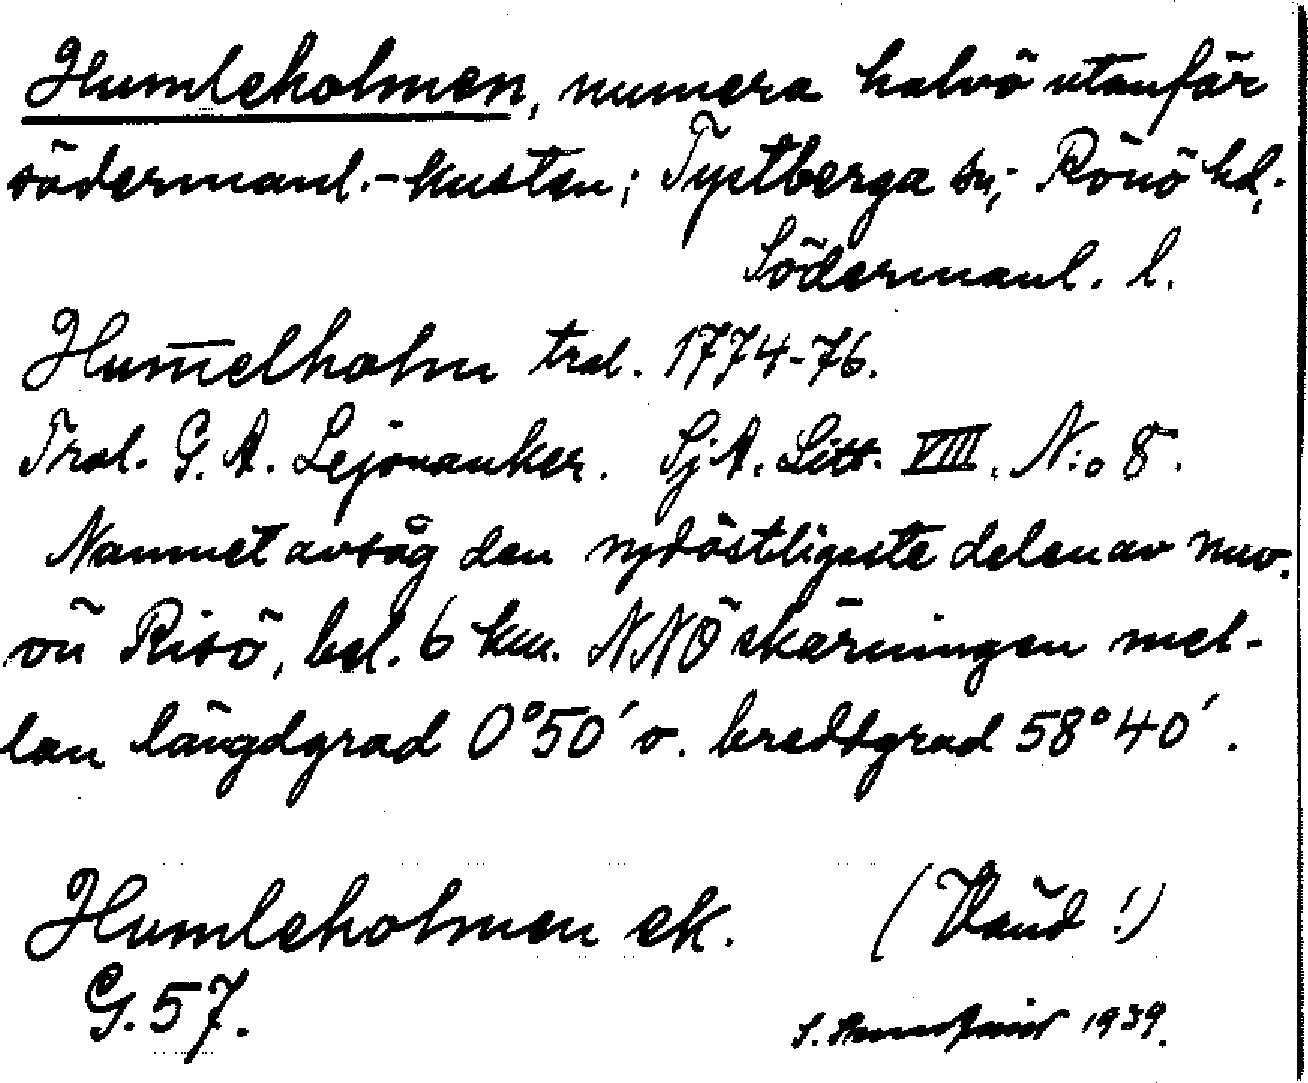 Humleholmen, numera halvö utanför
södermanl.-kusten; Tystberga sn, Rönö hd,
Södermanl. l.
Hum̅elholm tral. 1774-76.
Tral. G. A. Lejonanker. SjA. Litt. VIII. N:o 8.
Namnet avsåg den nydöstligaste delen av nuv.
ön Risö, bel. 6 km. NNÖ skärningen mel-
lan längdgrad 0°50' o. breddgrad 58°40'.
Humleholmen ek. (Vänd!)
G. 57.
S. 1939.